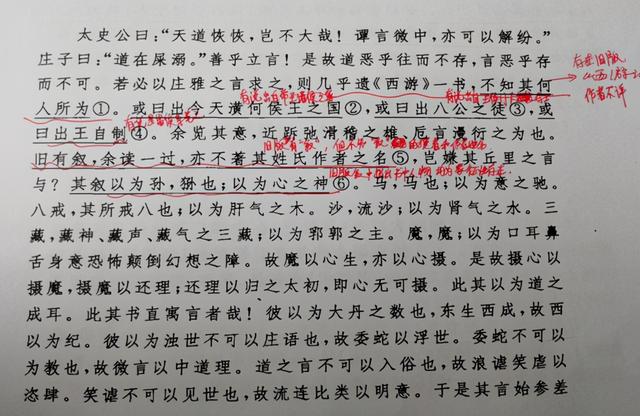 太史公曰：“天道恢恢，岂不大哉！谭言微中，亦可以解纷。”
庄子曰：“道在屎溺。”善乎立言！是故道恶乎往而不存，言恶乎存
而不可。若必以庄雅之言求之，则几乎遗《西游》一书，不知其何
人所为①。或曰出今天潢何侯王之国②，或曰出八公之徒③，或
曰出王自制④。余览其意，近跅弛滑稽之雄、卮言漫衍之为也。
旧有叙，余读一过，亦不著其姓氏作者之名⑤，岂嫌其丘里之言
与？其叙以为孙，狲也；以为心之神⑥。马，马也；以为意之驰。
八戒，其所戒八也；以为肝气之木。沙，流沙；以为肾气之水。三
藏，藏神、藏声、藏气之三藏；以为郛郭之主。魔，魔；以为口耳鼻
舌身意恐怖颠倒幻想之障。故魔以心生，亦以心摄。是故摄心以
摄魔，摄魔以还理；还理以归之太初，即心无可摄。此其以为道之
成耳。此其书直寓言者哉！彼以为大丹之数也，东生西成，故西
以为纪。彼以为浊世不可以庄语也，故委蛇以浮世。委蛇不可以
为教也，故微言以中道理。道之言不可以入俗也，故浪谑笑虐以
恣肆。笑谑不可以见世也，故流连比类以明意。于是其言始参差
作者不详